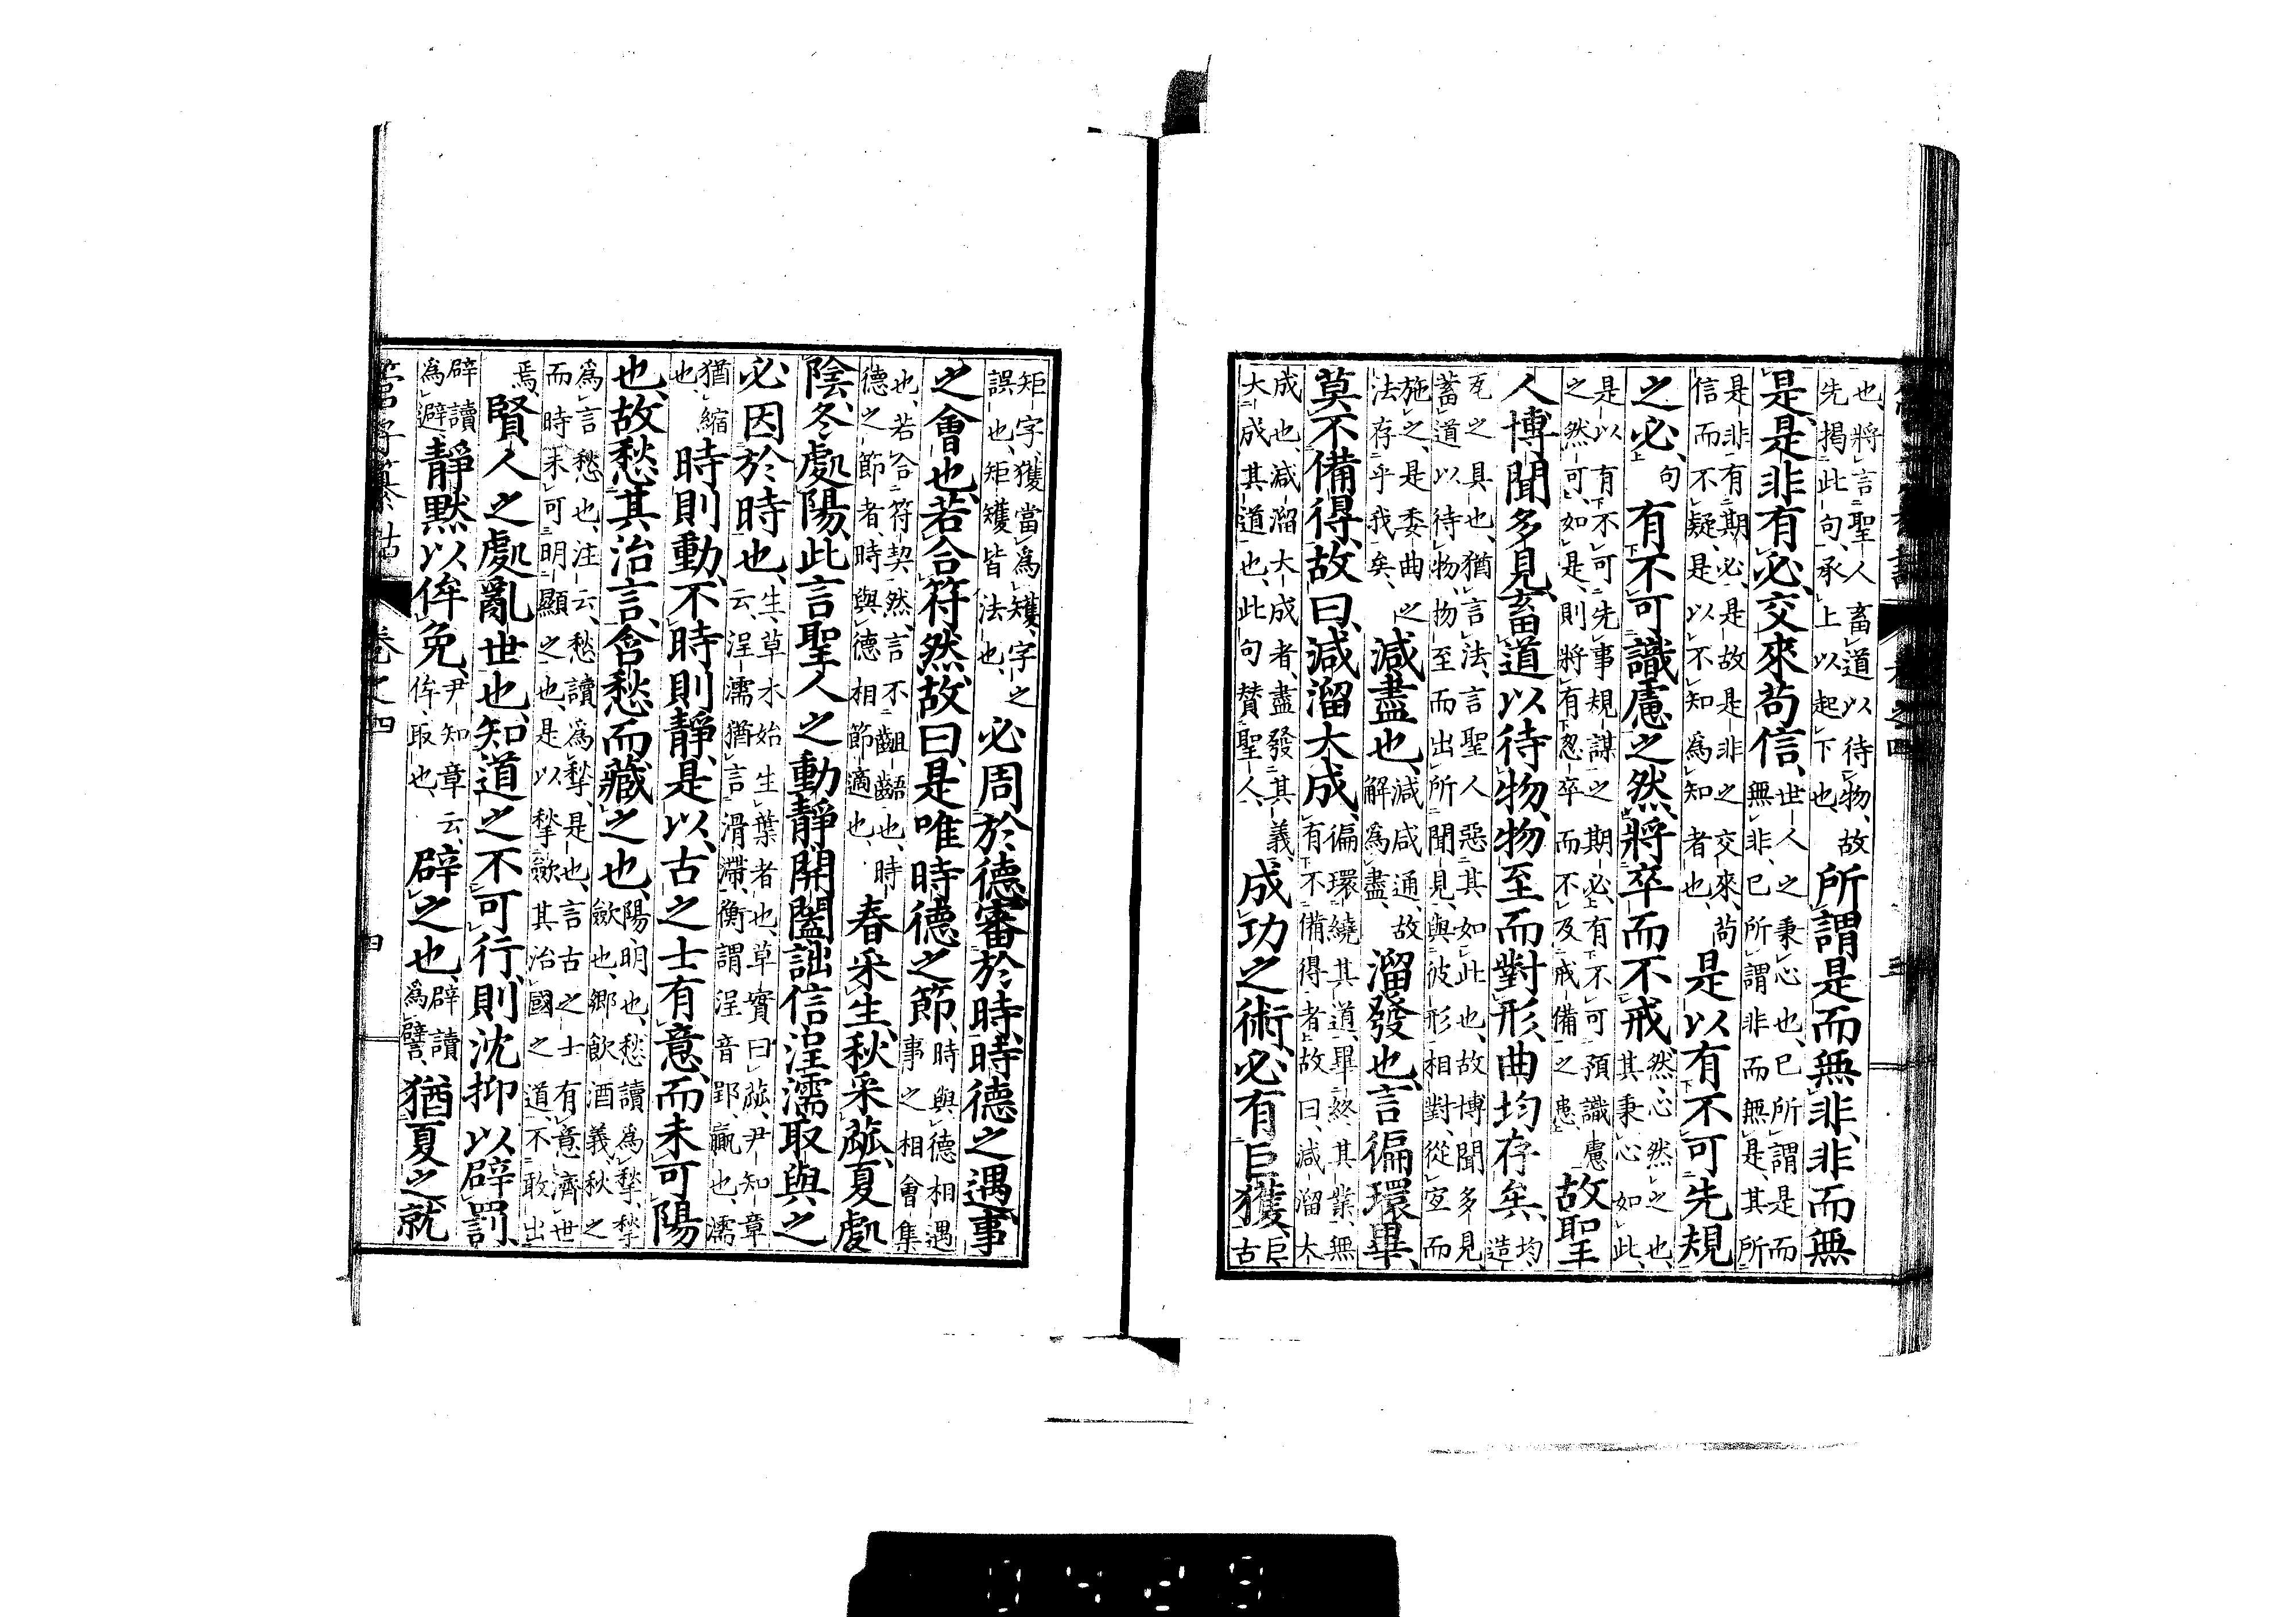 也、將言聖人畜道以待物、故
先揭此句、承上以起下也、所謂是而無非、非而無
是、是非有必、交來苟信、世人之秉心也、已所謂是而
無非、已所謂非而無是、其所
是非有期必、是故是非之交來、苟
信而不疑、是以不知爲知者也、是以有不可先規
之必、句有不可識慮之然、將卒而不戒、然心然之也、
其秉心如此、
是以有不可先事規謀之期必、有不可預識慮
之然可如是、則將有忽卒而不及戒備之患、故聖
人博聞多見、畜道以待物、物至而對形、曲均存矣、均、
造
瓦之具也、猶言法、言聖人惡其如此也、故博聞多見、
蓄道以待物、物至而出所聞見、與彼形相對、從宐而
施之、是委曲之
法存乎我矣、減盡也、減咸通、故
解爲盡、溜發也、言徧環畢、
莫不備得、故曰、減溜大成、徧環繞其道、畢終其業、無
有不備得者、故曰、減溜大
成也、減溜大成者、盡發其義、
大成其道也、此句贊聖人、成功之術、必有巨獲、巨、
古
矩字、獲當爲矱、字之
誤也、矩矱皆法也、必周於德、審於時、時德之遇、事
之會也、若合符然、故曰、是唯時德之節、時與德相遇
事之相會集
也、若合符契然、言不齟齬也、時
德之節者、時與德相節適也、春采生、秋采蓏、夏處
陰、冬處陽、此言聖人之動靜、開闔詘信、浧濡取與之
必因於時也、生、草木始生葉者也、草實曰蓏、尹知章
云、浧濡猶言滑滯、衡謂浧音郢、贏也、濡
猶縮
也、時則動、不時則靜、是以古之士有意、而未可陽
也、故愁其治言、含愁而藏之也、陽、明也、愁讀爲揫、揫
斂也、鄉飲酒義、秋之
爲言愁也、注云、愁讀爲揫、是也、言古之士有意濟世
而時未可明顯之也、是以揫斂其治國之道、不敢出
焉、賢人之處亂世也、知道之不可行、則沈抑以辟罰、
辟讀
爲避靜默以侔免、尹知章云、
侔、取也、辟之也、辟讀
爲譬、猶夏之就
管子纂詁
卷之四